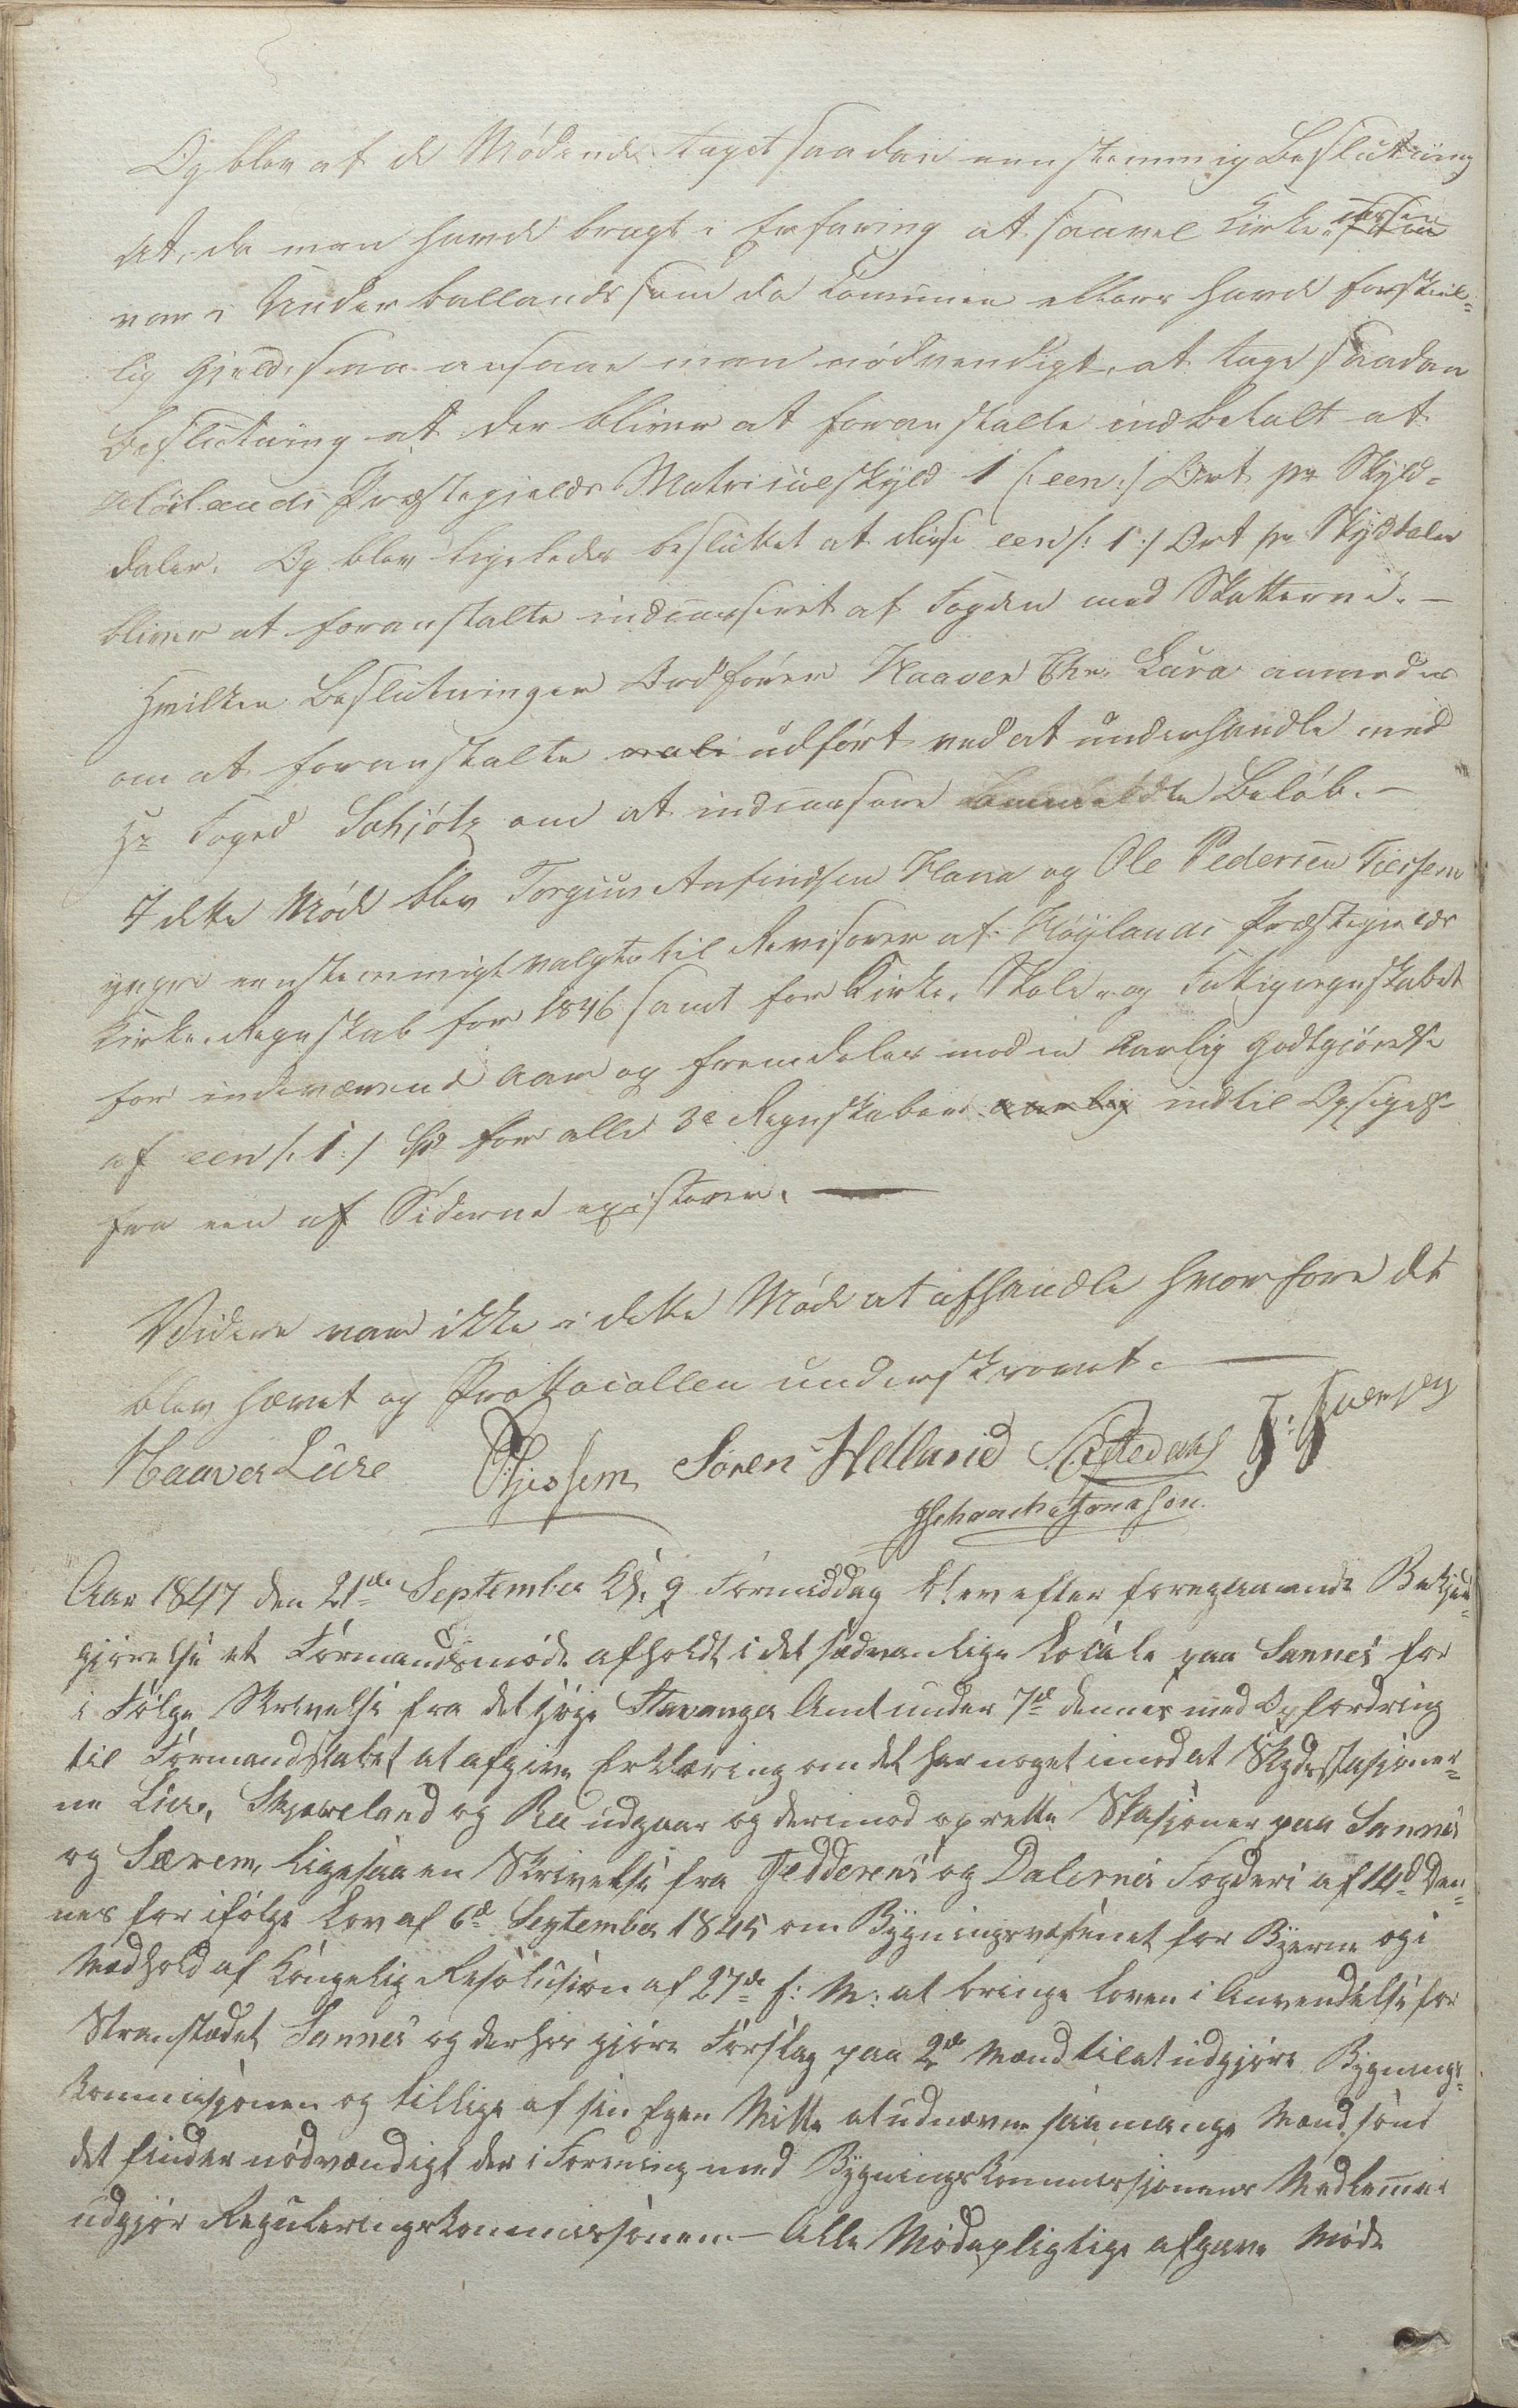 Og blev af de Mödende taget saadan eenstemmig Beslutning
at, da man havde bragt i Erfaring at saavel Kirke-
var i Underballands som da Communen ellers havde forskiel-
lig Gjeld, saa ansaae man nödvendigt, at tage saadan
Beslutning at der bliver at foranstalte indbetalt at
Höilands Præstegjelds Matriculskyld 1 (: een :) Ort pr Skyld-
daler. Og blev ligeledes besluttet at disse een /: 1 :/ Ort pr Skylddaler
bliver at foranstalte indcasseret af Fogden med Skatterne. —
Hvilken Beslutninger Ordförer Haaver Chr. Lura anmodes
om at foranstalte udfört ved at underhandle med
Hr Foged Schjötz om at indcassere Belöb. —
I dette Möde blev Torgius Anfindsen Hana og Ole Pedersen Tjessem
yngre eenstemmigt valgte til Revisorer af Höÿlands Præstegjelds
Kirke-Regnskab for 1846 samt for Kirke- Skole- og Fattigregnskabet
for indeværende Aar og fremdeles mod en Aarlig Godtgjörelse
af een /: 1 :/ Spd for alle 3e Regnskaber aarlig indtil Opsigelse
fra een af Siderne existerer. —
Videre var ikke i dette Möde at afhandle hvorfore det
blev hævet og Prottocollen underskrevet. —
Haaver Lure Tjessem Sören Helland J: Iversen
Aar 1847 den 21de September Kl. 9 Formiddag blev efter foregaaende Bekjendt-
gjörelse et Formandsmöde afholdt i det sædvanlige Locale paa Sannes for
i Fölge Skrivelse fra det höje Stavanger Amt under 7de dennes med Opfordring
til Formandskabet at afgive Erklæring om det har noget imod at Skydsstasjoner-
ne Lure, Skjæveland og Re udgaar og derimod oprette Stasjoner paa Sannes
og Særem, ligesaa en Skrivelse fra Jedderens og Dalernes Fogderi af 14d Den-
nes for ifölge Lov af 6d September 1845 om Bygningsvæsenet for Byerne og i
Medhold af Kongelig Resolusion af 27de f: M: at bringe Loven i Anvendelse for
Stranstædet Sannes og derhos gjöre Forslag paa 2de Mænd til at udgjöre Bygnings-
kommissjonen og tillige af sin Egen Mitte at udnævne saa mange Mænd som
det finder nödvændigt der i Forening med Bygningskommissjonens Medlemmer
udgjör Reguleringskommissionen. — Alle Mödepligtige afgave Möde